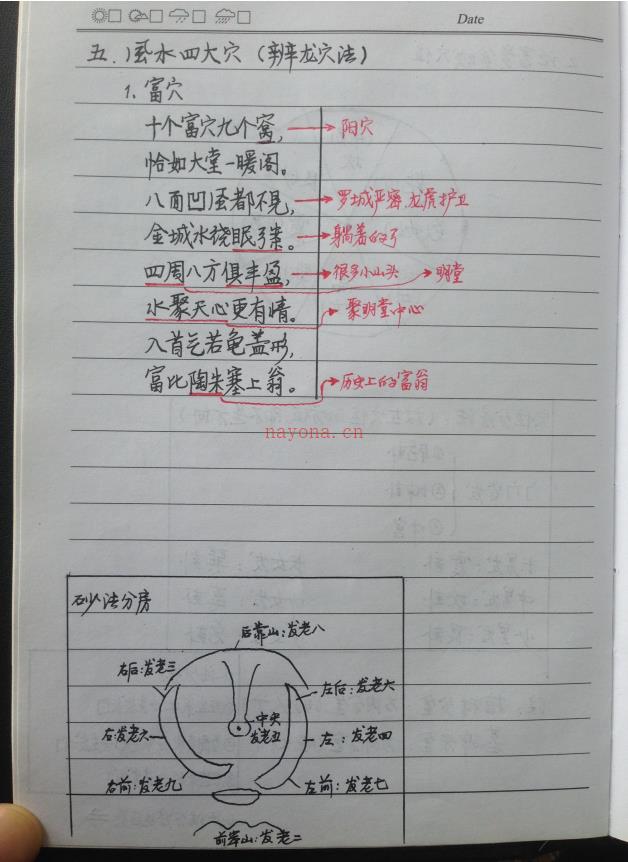 Date
五. 风水四大穴（辨龙穴法）
1. 富穴
十个富穴九个窝, → 阳穴
恰如大堂一暖阁。
八面凹风都不见, → 罗城严密,龙虎护卫
金城水绕眠弓案。 → 躺着的弓
四周八方俱丰盈, → 很多小山头 → 明堂
水聚天心更有情。 → 聚明堂中心
入首气若龟盖形,
富比陶朱塞上翁。 → 历史上的富翁
nayona.cn
砂法分房
后靠山:发老八
右后:发老三
左后:发老六
中央
发老五
右:发老六
左:发老四
右前:发老九
左前:发老七
前案山:发老二